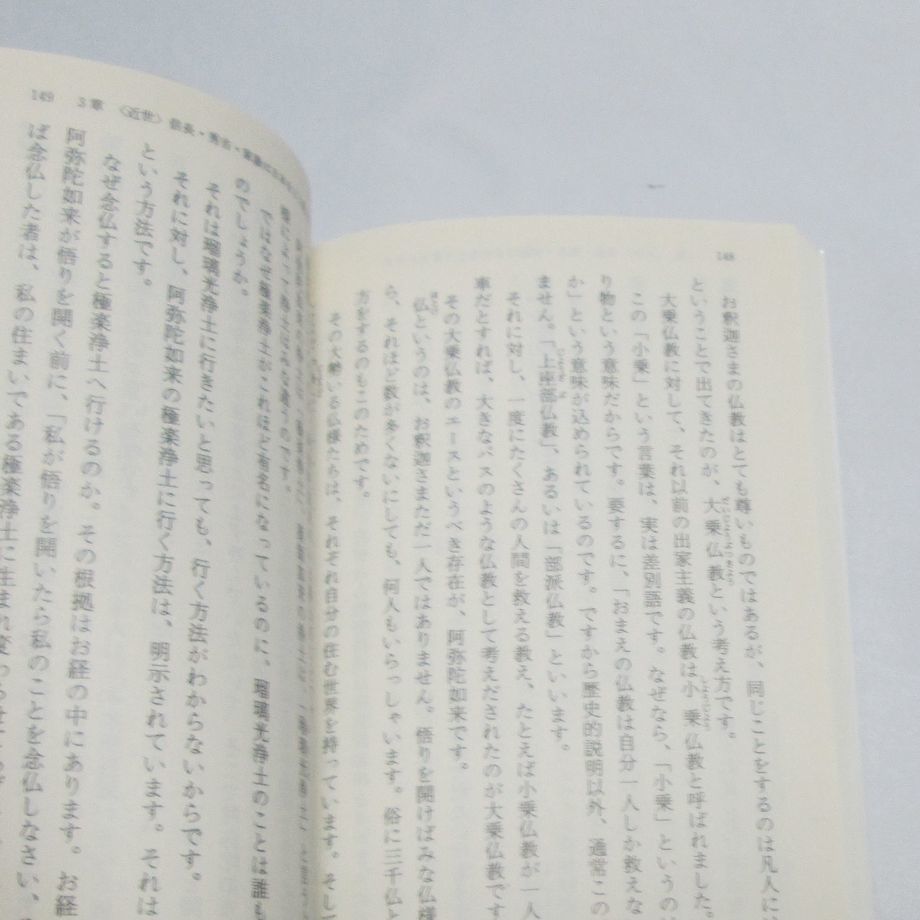 148
お釈迦さまの仏教はとても尊いものではあるが、同じことをするのは凡人に
ということで出てきたのが、大乗仏教という考え方です。
大乗仏教に対して、それ以前の出家主義の仏教は小乗仏教と呼ばれました。
この「小乗」という言葉は、実は差別語です。なぜなら、「小乗」というのは
り物という意味だからです。要するに、「おまえの仏教は自分一人しか救えな
か」という意味が込められているのです。ですから歴史的説明以外、通常この
ません。「上座部仏教」、あるいは「部派仏教」といいます。
それに対し、一度にたくさんの人間を救える教え、たとえば小乗仏教が一人
車だとすれば、大きなバスのような仏教として考えだされたのが大乗仏教です
その大乗仏教のエースというべき存在が、阿弥陀如来です。
仏というのは、お釈迦さまただ一人ではありません。悟りを開けばみな仏様
ら、それほど数が多くないにしても、何人もいらっしゃいます。俗に三千仏と
方をするのもこのためです。
その大勢いる仏様たちは、それぞれ自分の住む世界を持っています。そして
149 3章 〈近世〉信長・秀吉・家康
様によって浄土はみな違うのです。
ではなぜ極楽浄土がこれほど有名になっているのに、瑠璃光浄土のことは誰も
のでしょうか。
それは瑠璃光浄土に行きたいと思っても、行く方法がわからないからです。
それに対し、阿弥陀如来の極楽浄土に行く方法は、明示されています。それは
という方法です。
なぜ念仏すると極楽浄土へ行けるのか。その根拠はお経の中にあります。お経
阿弥陀如来が悟りを開く前に、「私が悟りを開いたら私のことを念仏しなさい。
ば念仏した者は、私の住まいである極楽浄土に生まれ変わらせ